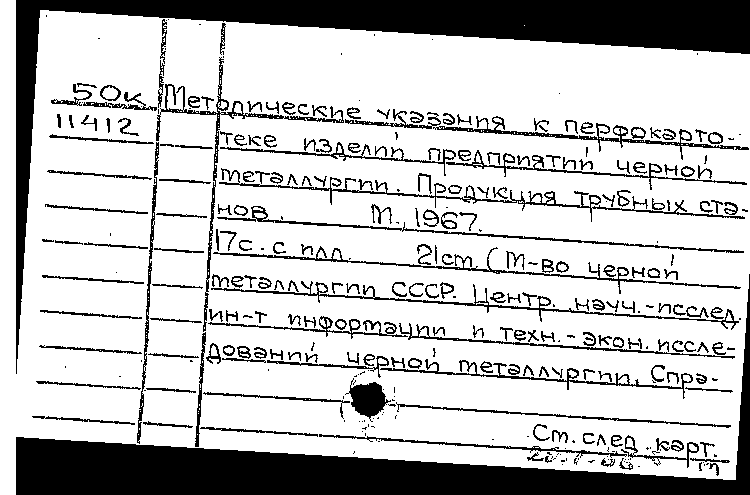 50к Методические указания к перфокарто-
11412 теке изделий предприятий черной
металлургии. Продукция трубных ста-
нов. М., 1967.
17с. с илл. 21см. (М-во черной
металлургии СССР. Центр. науч.-исслед.
ин-т информации и техн.-экон. иссле-
дований черной металлургии. Спра-
См. след. карт.
м